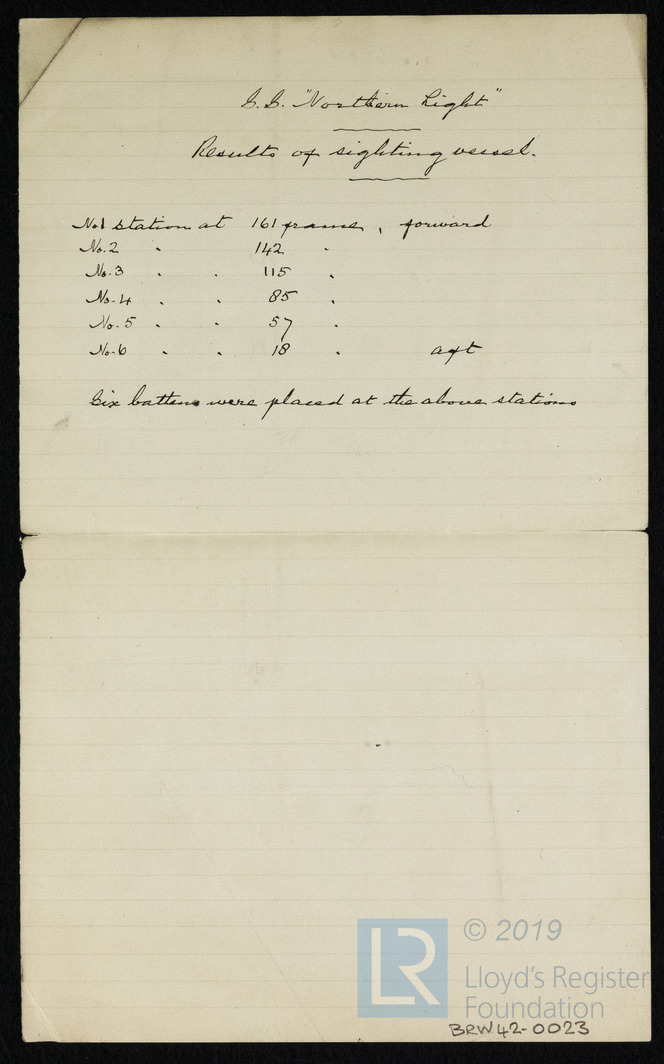 S.S. "Northern Light"
Results of sighting vessel.
No1 station at 161 frame, forward
No.2 " 142 "
No.3 " " 115 "
No.4 " " 85 "
No.5 " " 57 "
No.6 " " 18 " aft
Six battens were placed at the above stations
LR
© 2019
Lloyd's Register
Foundation
BRW42-0023